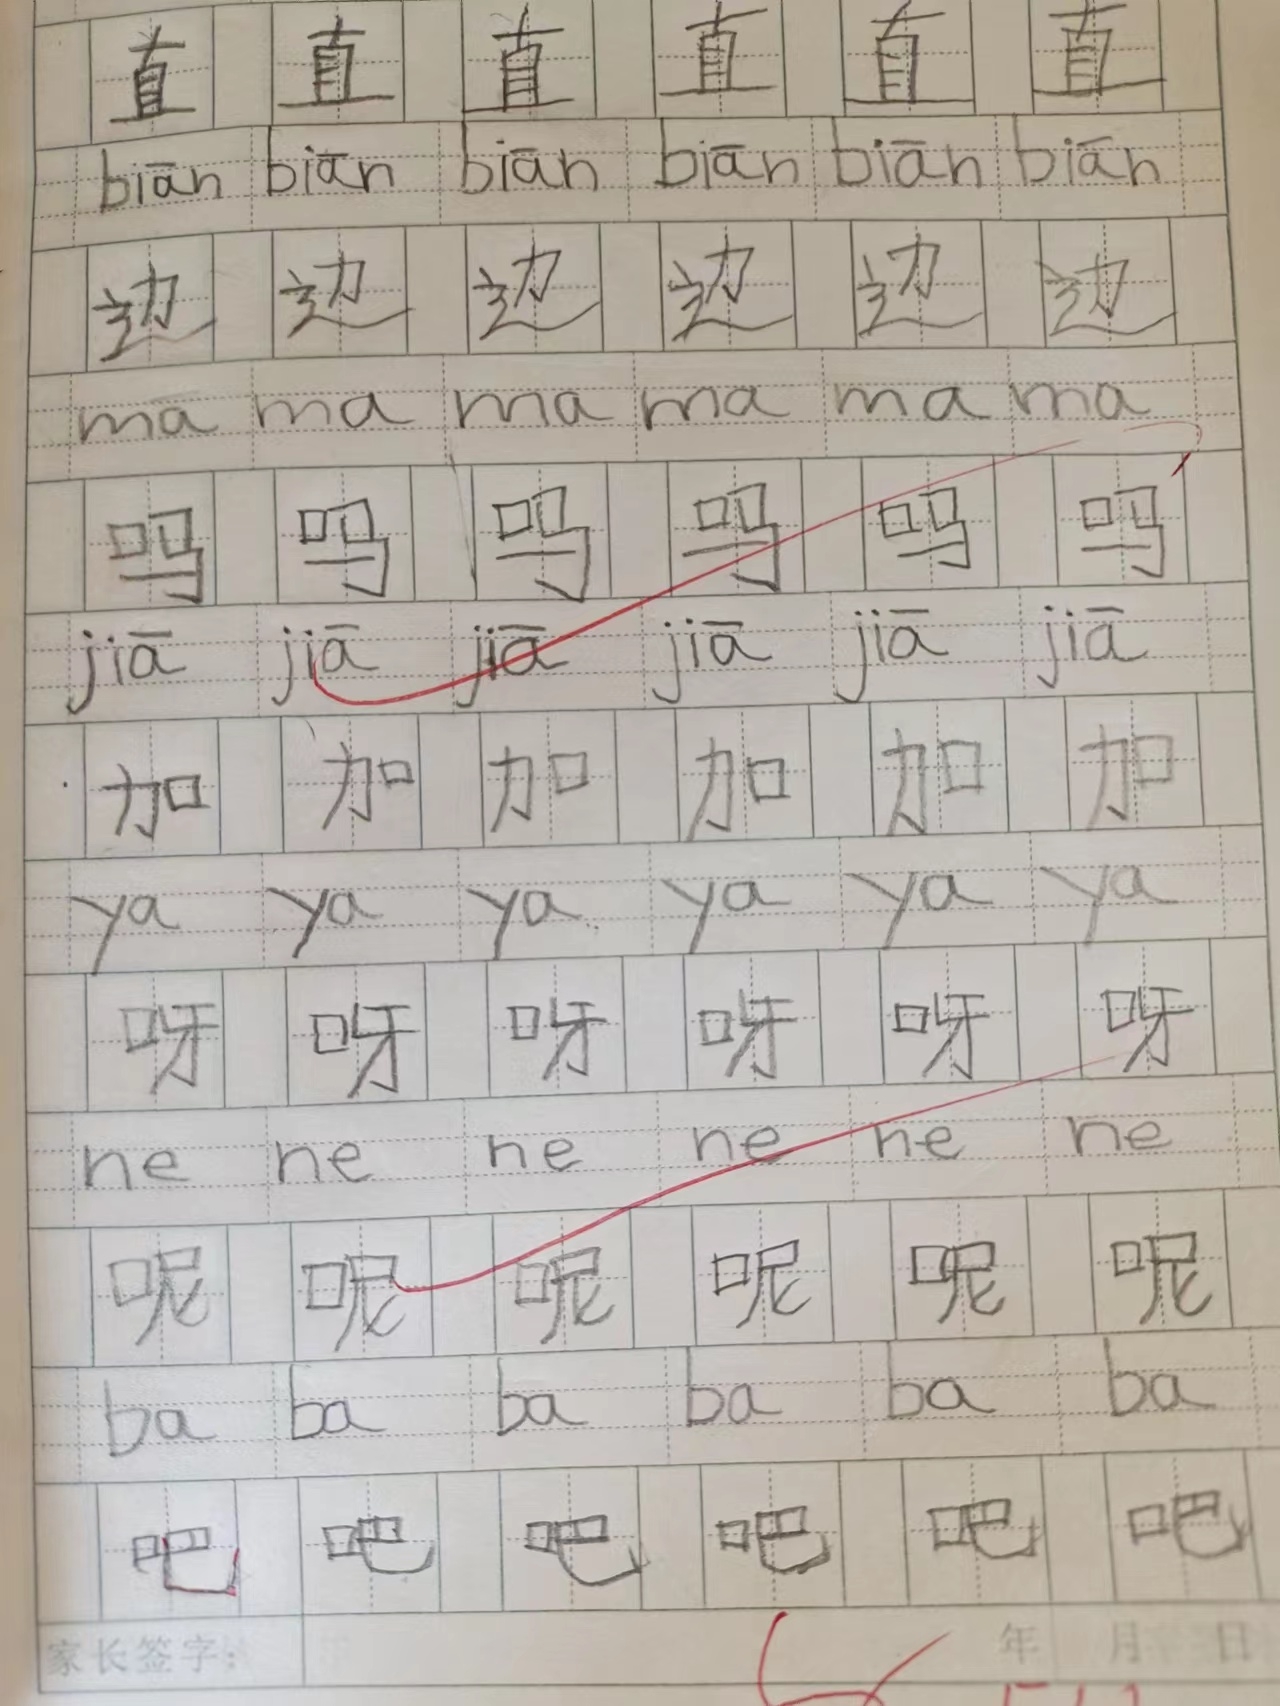 直 直 直 直 直 直
biān biān biān biān biān biān
边 边 边 边 边 边
ma ma ma ma ma ma
吗 吗 吗 吗 吗 吗
jiā jiā jiā jiā jiā jiā
加 加 加 加 加 加
ya ya ya ya ya ya
呀 呀 呀 呀 呀 呀
ne ne ne ne ne ne
呢 呢 呢 呢 呢 呢
ba ba ba ba ba ba
吧 吧 吧 吧 吧 吧
家长签字: 年 月 日